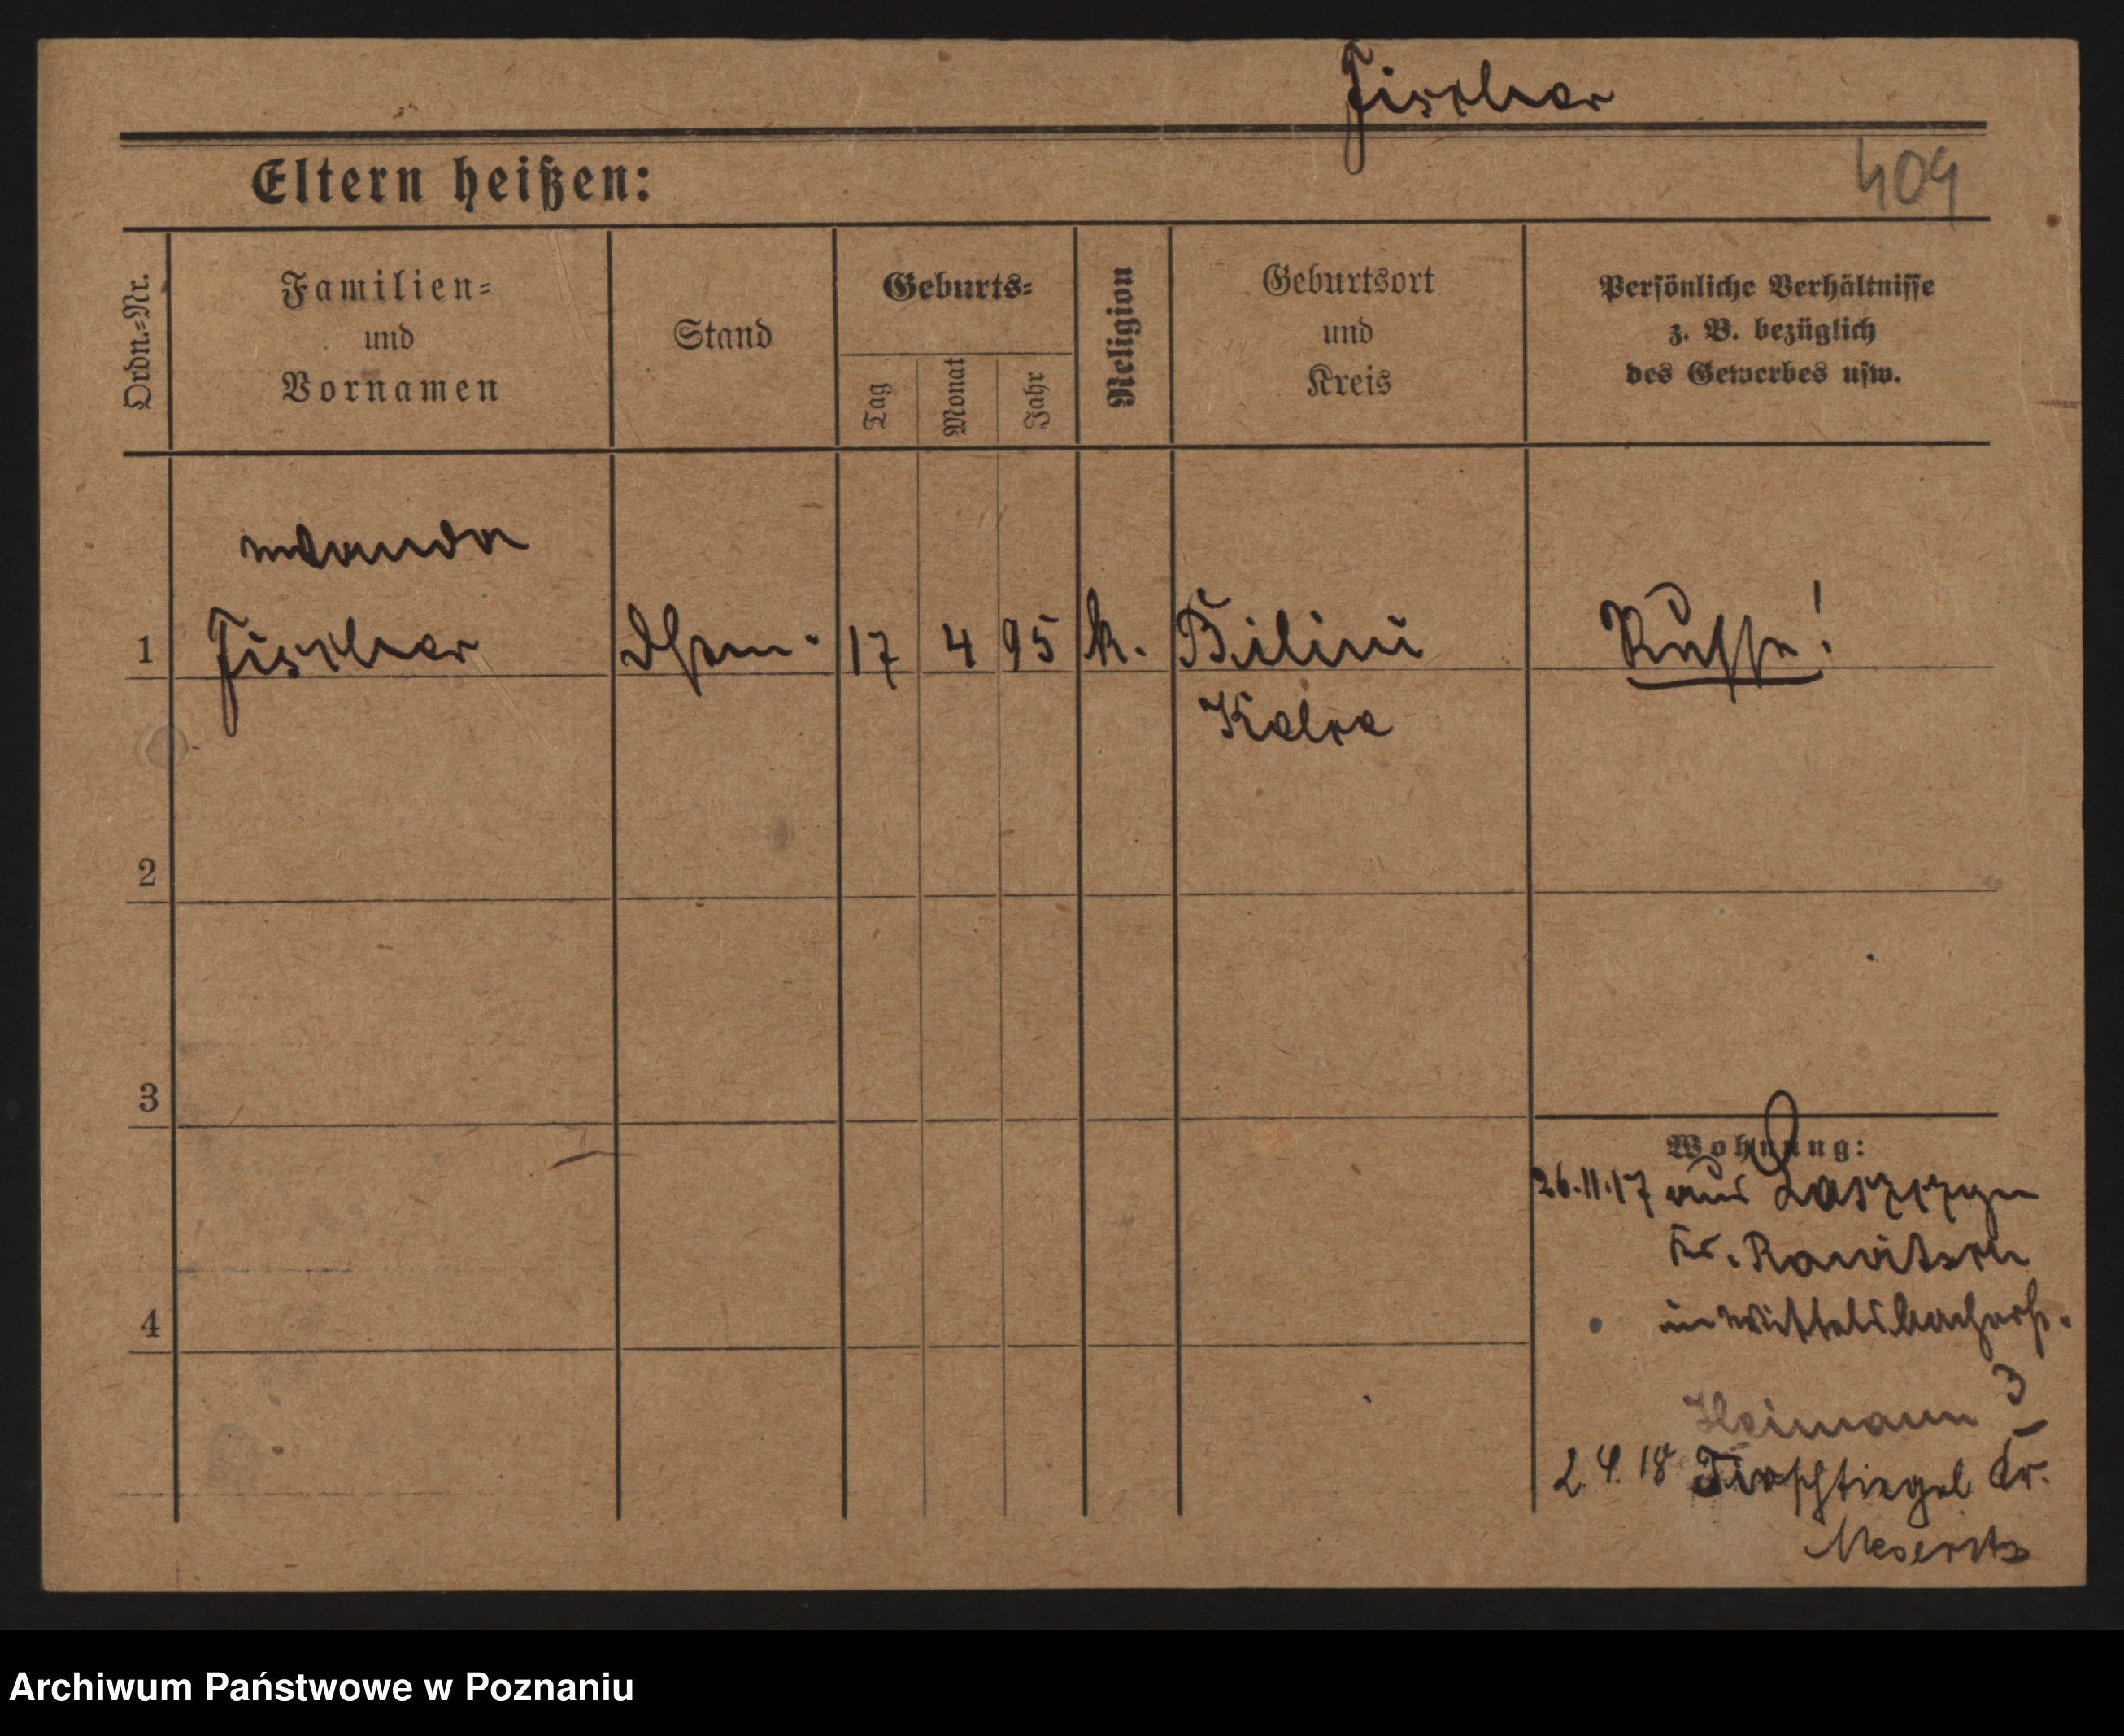 Fischer
Eltern heißen:
404
Ordn.=Nr.
Familien=
und
Vornamen
Stand
Geburts=
Tag
Monat
Jahr
Religion
Geburtsort
und
Kreis
Persönliche Verhältnisse
z. B. bezüglich
des Gewerbes usw.
1 Fischer 17 4 95 k. Russe!
2
3
4
Wohnung:
26.11.17 aus
Kr. Rawitsch
in Wittelsbacherstr.
3
Heimann
2.4.18 Tirschtiegel Kr.
Meseritz
Archiwum Państwowe w Poznaniu